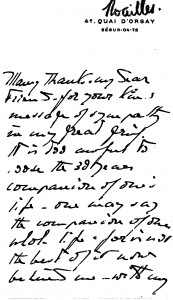 Noailles.
41, QUAI D'ORSAY
SÉGUR-04-78
Many Thanks, my dear
Friend - for your kind
message of sympathy
in my great grief
It is too awful to
lose the 38 years
companion of one's
life - one may say
the companion of one
whole life - for is not
the best of it now
behind me - with my